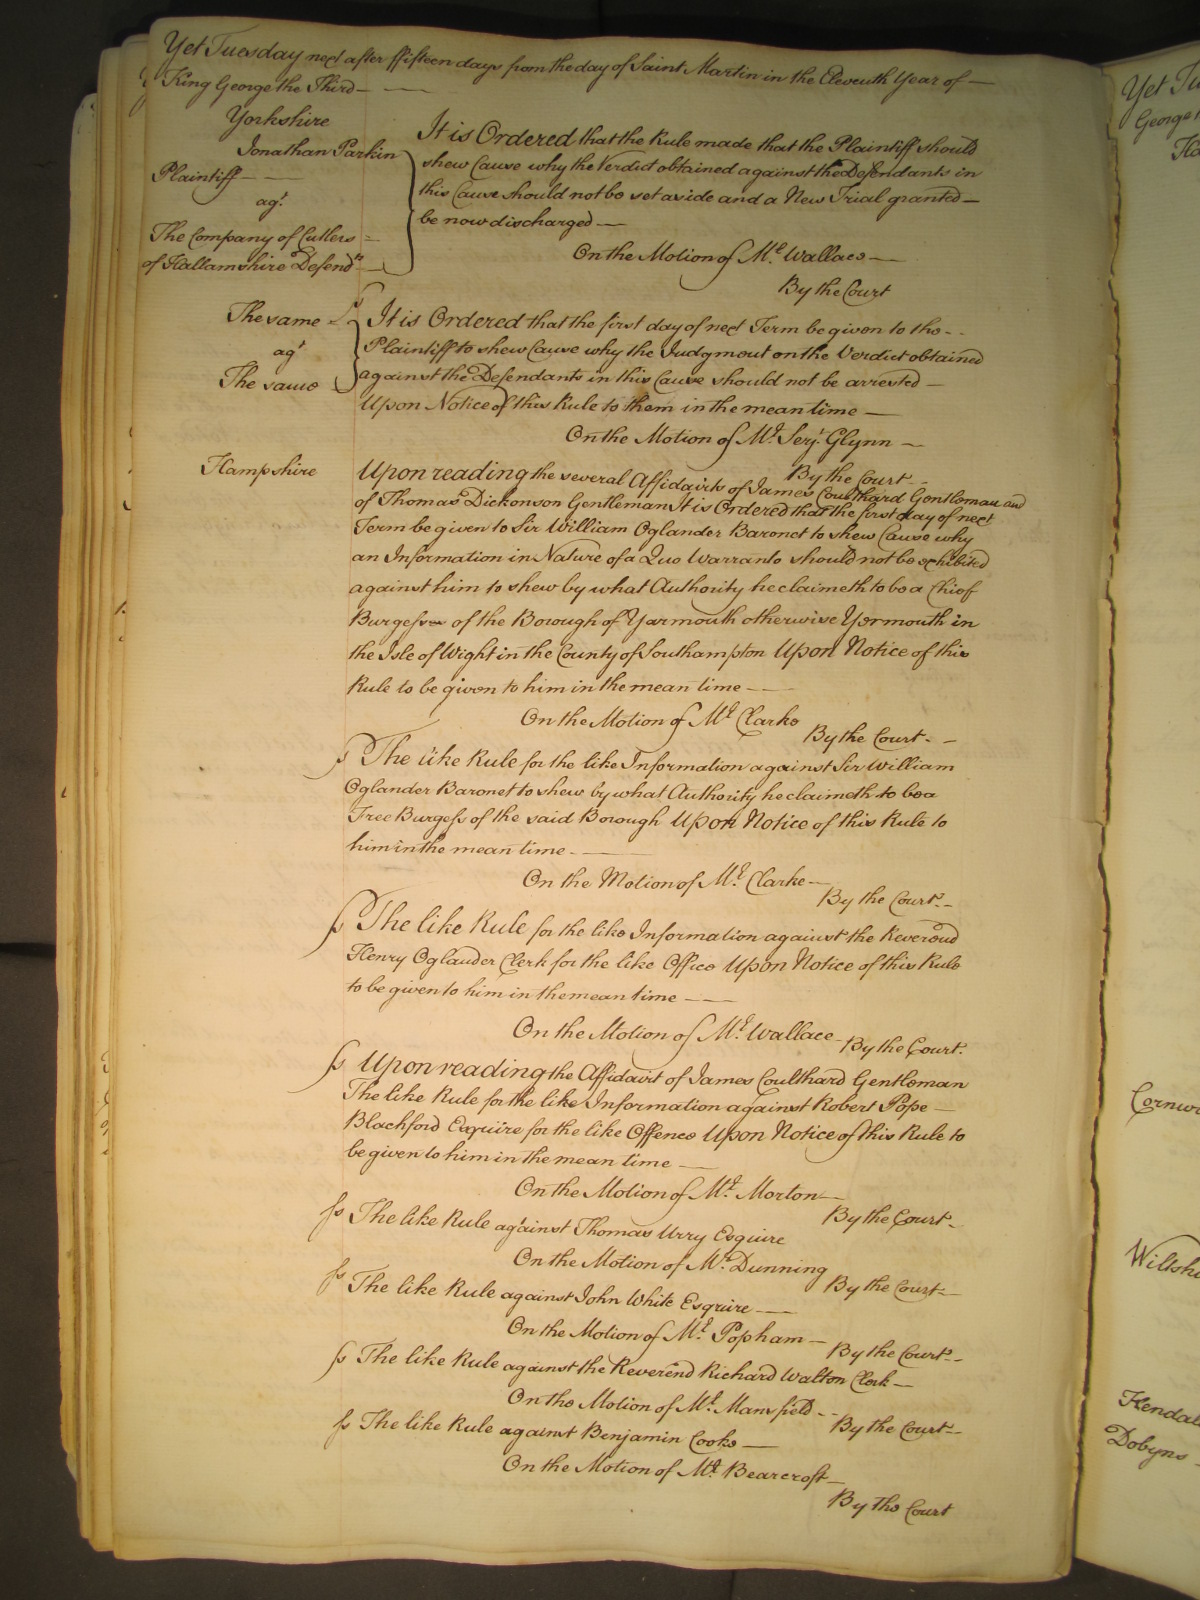 Yet Tuesday next after ffifteen days from the day of Saint Martin in the Eleventh Year of —
King George the Third — —
Yorkshire
Jonathan Parkin
Plaintiff — —
agt.
The Company of Cutlers =
of Hallamshire Defendts —
It is Ordered that the Rule made that the Plaintiff should
shew Cause why the Verdict obtained against the Defendants in
this Cause should not be set aside and a New Trial granted —
be now discharged —
On the Motion of Mr. Wallace —
By the Court
The same
agt
The same
It is Ordered that the first day of next Term be given to the - -
Plaintiff to shew Cause why the Judgment on the Verdict obtained
against the Defendants in this Cause should not be arrested —
Upon Notice of this Rule to them in the mean time —
On the Motion of Mr. Serjt. Glynn —
By the Court -
Hampshire
Upon reading the several Affidavits of James Coulthard Gentleman and
of Thomas Dickonson Gentleman It is Ordered that the first day of next
Term be given to Sir William Oglander Baronet to shew Cause why
an Information in Nature of a Quo Warranto should not be exhibited
against him to shew by what Authority he claimeth to be a Chief
Burgess of the Borough of Yarmouth otherwise Yermouth in
the Isle of Wight in the County of Southampton Upon Notice of this
Rule to be given to him in the mean time — —
On the Motion of Mr. Clarke
By the Court - -
ss The like Rule for the like Information against Sir William
Oglander Baronet to shew by what Authority he claimeth to be a
Free Burgess of the said Borough Upon Notice of this Rule to
him in the mean time - —
On the Motion of Mr. Clarke —
By the Court - -
ss The like Rule for the like Information against the Reverend
Henry Oglander Clerk for the like Office Upon Notice of this Rule
to be given to him in the mean time — —
On the Motion of Mr. Wallace -
By the Court.
ss Upon reading the Affidavit of James Coulthard Gentleman
The like Rule for the like Information against Robert Pope —
Blachford Esquire for the like Offence Upon Notice of this Rule to
be given to him in the mean time —
On the Motion of Mr. Morton —
By the Court -
ss The like Rule against Thomas Urry Esquire
On the Motion of Mr. Dunning
By the Court -
ss The like Rule against John White Esquire —
On the Motion of Mr. Popham —
By the Court - -
ss The like Rule against the Reverend Richard Walton Clerk —
On the Motion of Mr. Mansfield - -
By the Court - -
ss The like Rule against Benjamin Cooke —
On the Motion of Mr. Bearcroft —
By the Court
Yet Tu
George
Cornw
Wiltshi
Kendal
Dobyns